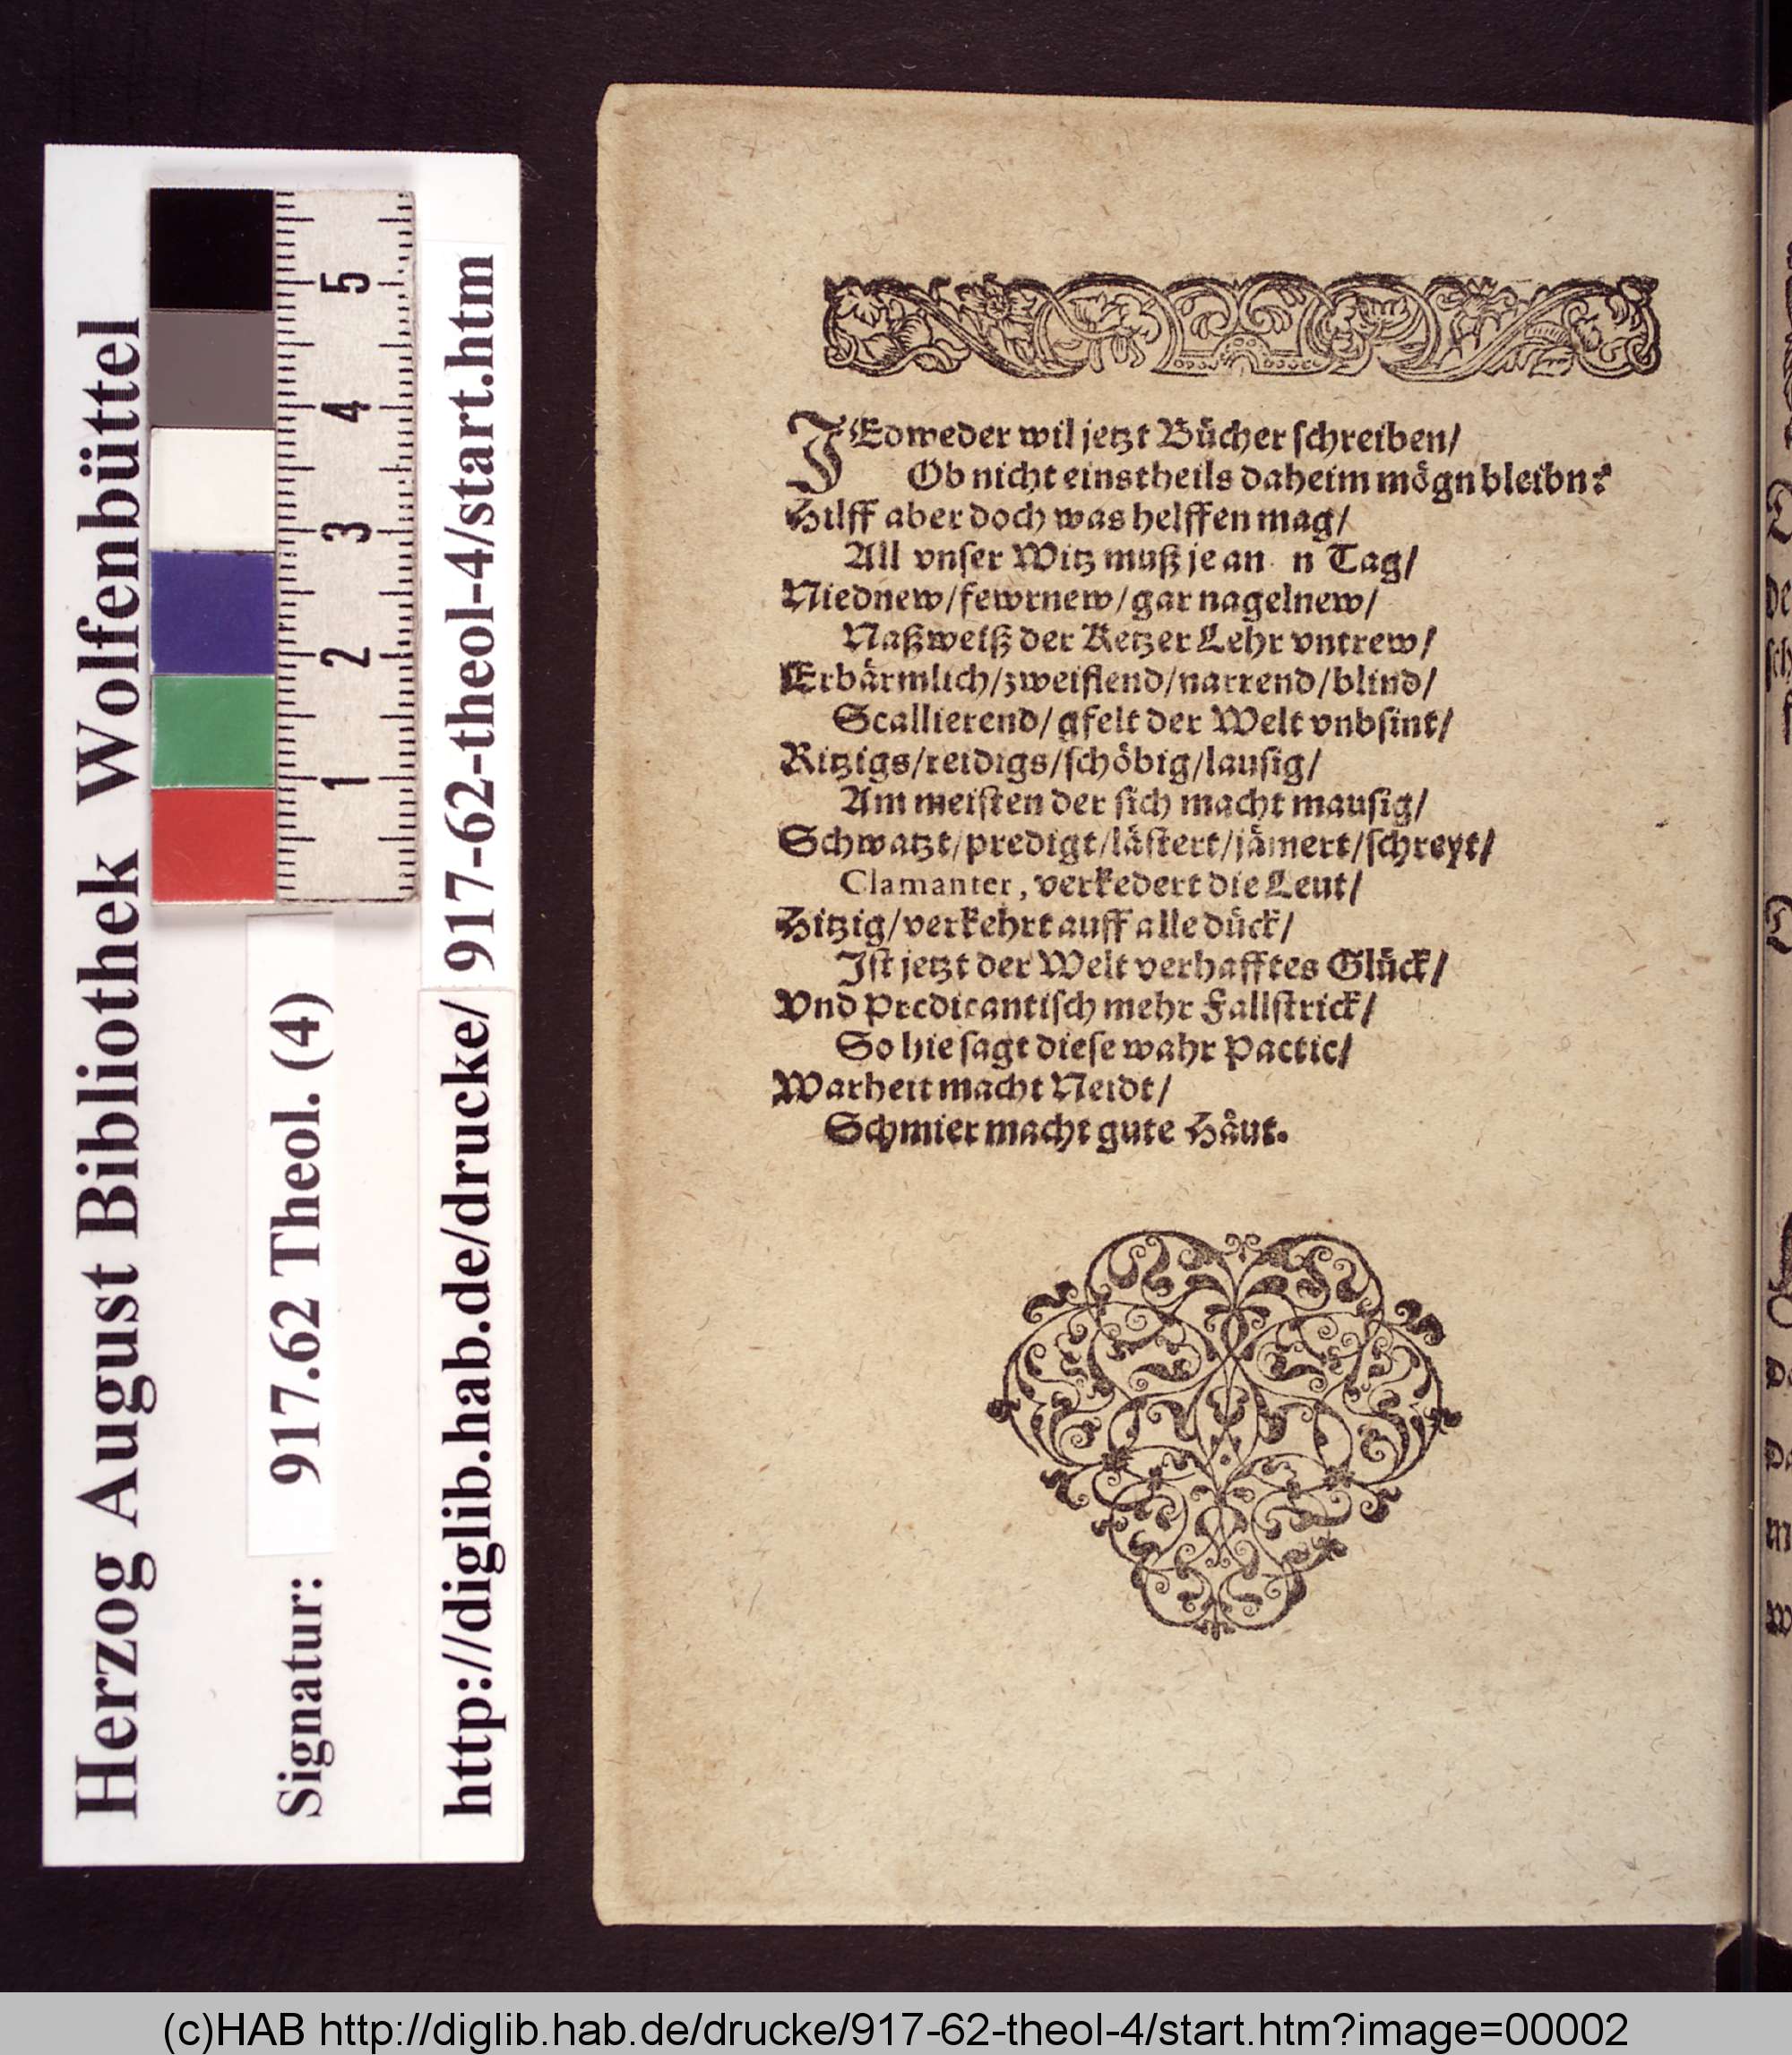 Herzog August Bibliothek Wolfenbüttel
Signatur: 917.62 Theol. (4)
http://diglib.hab.de/drucke/917-62-theol-4/start.htm
5
4
3
2
1
JEdweder wil jetzt Bücher schreiben/
Ob nicht einstheils daheim mögn bleibn?
Hilff aber doch was helffen mag/
All vnser Witz muß je an n Tag/
Niednew/fewrnew/gar nagelnew/
Naßweiß der Ketzer Lehr vntrew/
Erbärmlich/zweiflend/narrend/blind/
Scallierend/gfelt der Welt vnbsint/
Ritzigs/reidigs/schöbig/lausig/
Am meisten der sich macht mausig/
Schwatzt/predigt/lästert/jämert/schreyt/
Clamanter, verkedert die Leut/
Hitzig/verkehrt auff alle dück/
Jst jetzt der Welt verhafftes Glück/
Vnd Predicantisch mehr Fallstrick/
So hie sagt diese wahr Pactic/
Warheit macht Neidt/
Schmier macht gute Häut.
(c)HAB http://diglib.hab.de/drucke/917-62-theol-4/start.htm?image=00002